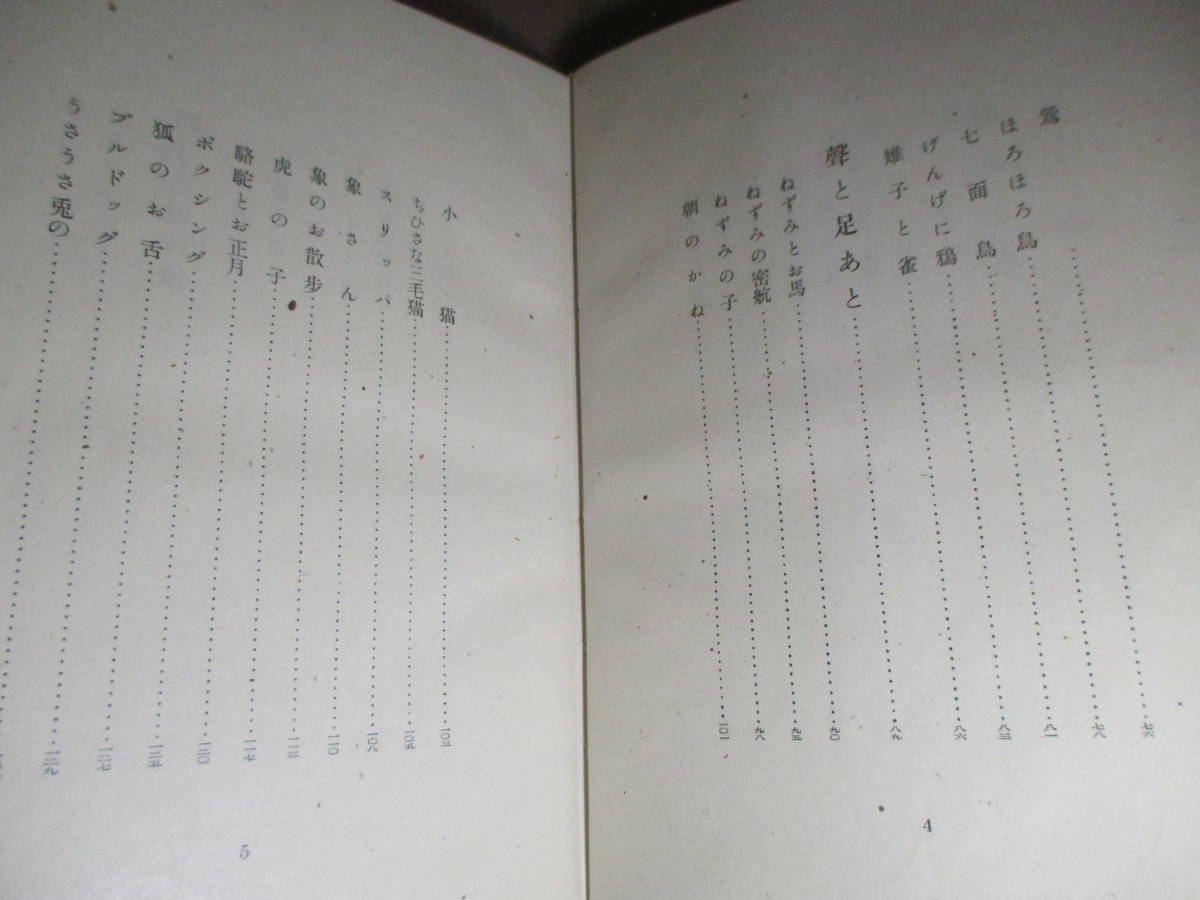 鶯……七六
ほろほろ鳥……七八
七面鳥……八一
げんげに……八三
雉子と雀……八六
聲と足あと……八九
ねずみとお馬……九〇
ねずみの密航……九五
ねずみの子……九八
朝のかね……一〇一
4
小猫……一〇三
ちひさな三毛猫……一〇五
スリッパ……一〇八
象さん……一一〇
象のお散歩……一一三
虎の子……一一七
駱駝とお正月……一二〇
ボクシング……一二五
狐のお舌……一二七
ブルドッグ……一二九
うさうさ兎の……
5